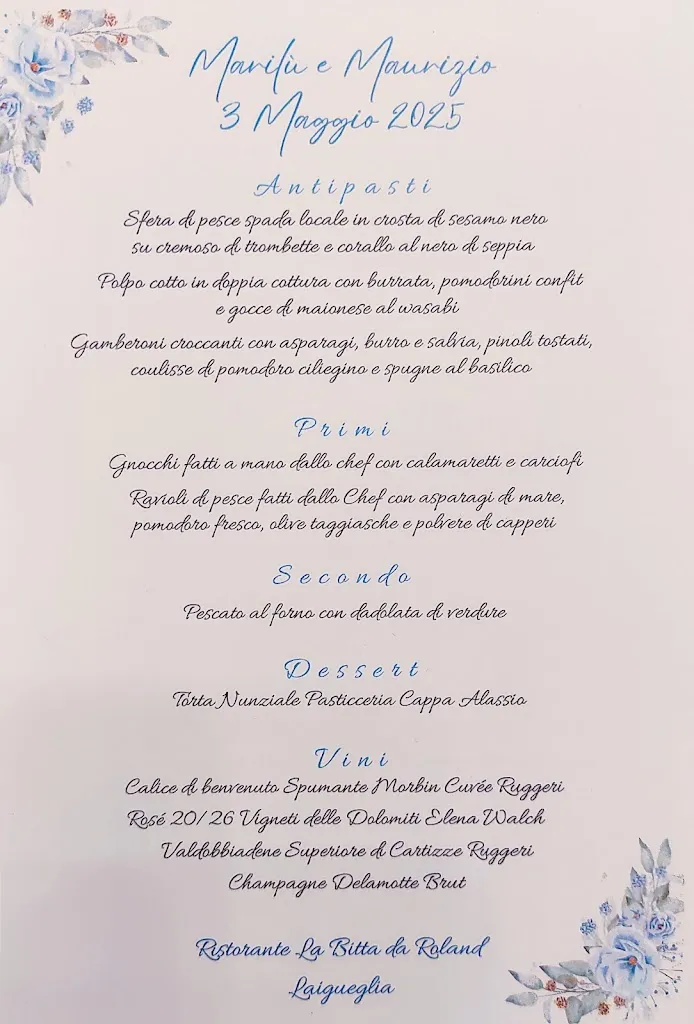 Marilù e Maurizio
3 Maggio 2025
Antipasti
Sfera di pesce spada locale in crosta di sesamo nero
su cremoso di trombette e corallo al nero di seppia
Polpo cotto in doppia cottura con burrata, pomodorini confit
e gocce di maionese al wasabi
Gamberoni croccanti con asparagi, burro e salvia, pinoli tostati,
coulisse di pomodoro ciliegino e spugne al basilico
Primi
Gnocchi fatti a mano dallo chef con calamaretti e carciofi
Ravioli di pesce fatti dallo Chef con asparagi di mare,
pomodoro fresco, olive taggiasche e polvere di capperi
Secondo
Pescato al forno con dadolata di verdure
Dessert
Torta Nunziale Pasticceria Cappa Alassio
Vini
Calice di benvenuto Spumante Morbin Cuvée Ruggeri
Rosé 20/26 Vigneti delle Dolomiti Elena Walch
Valdobbiadene Superiore di Cartizze Ruggeri
Champagne Delamotte Brut
Ristorante La Bitta da Roland
Laigueglia